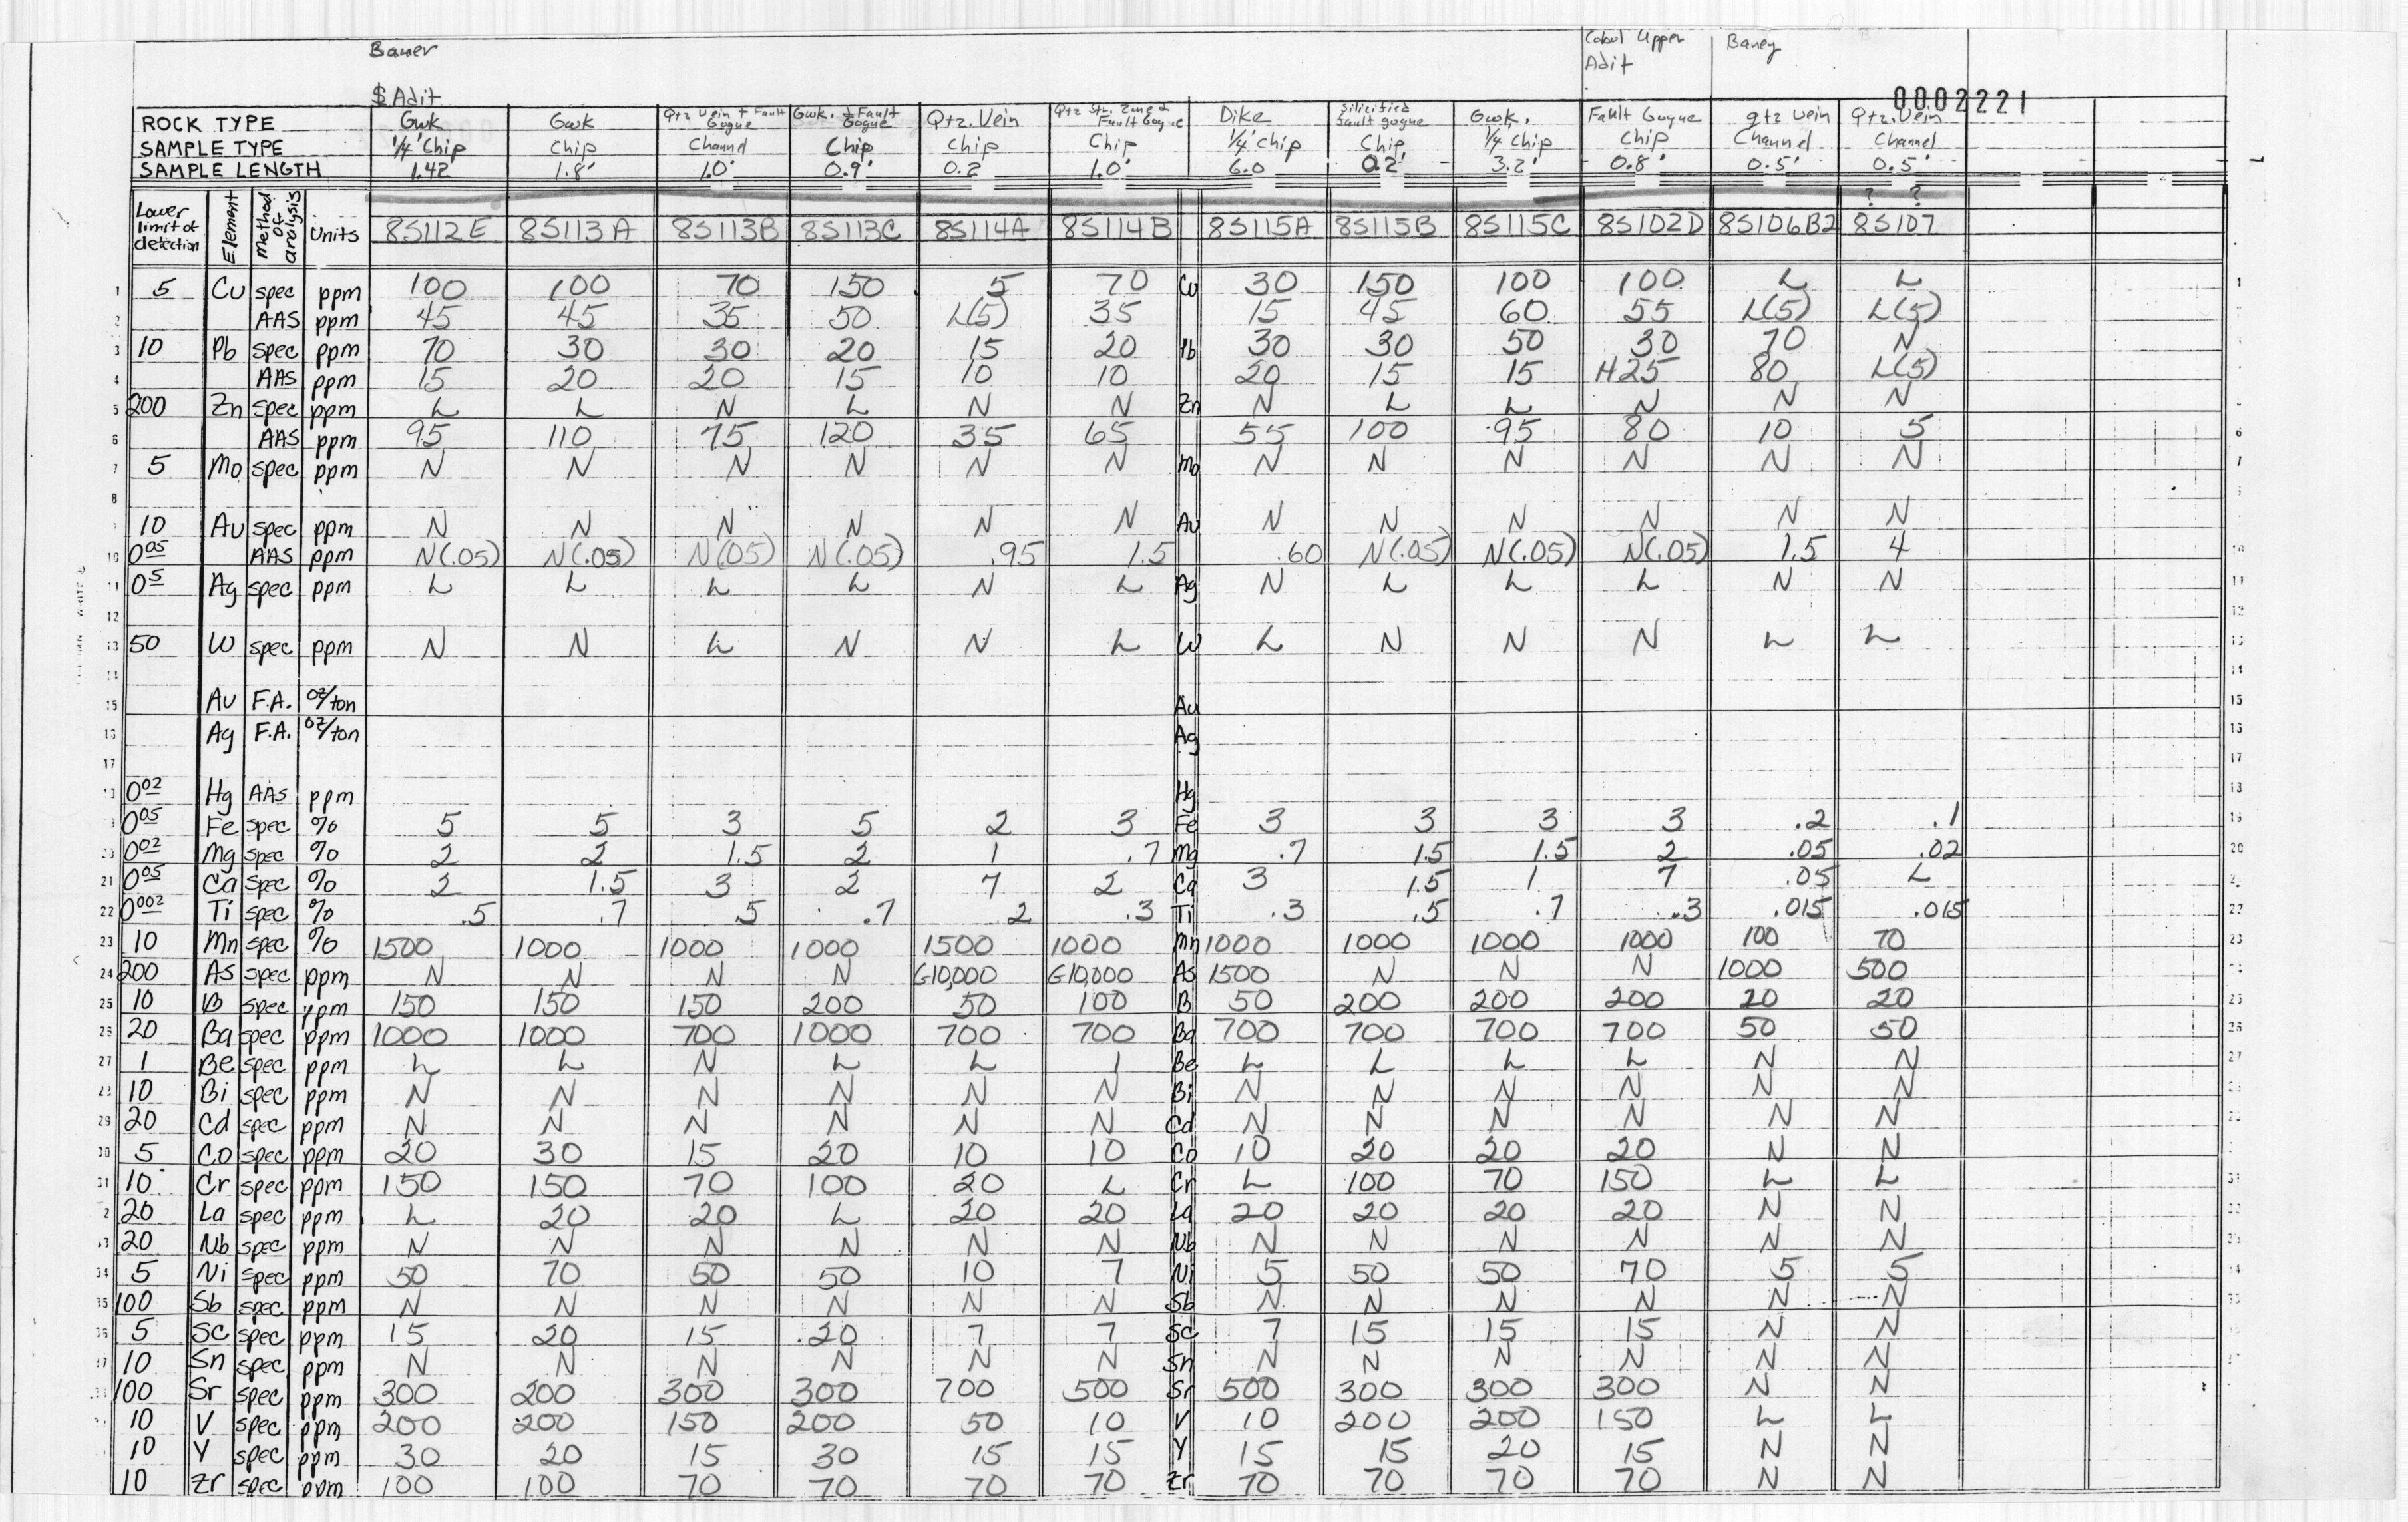 Bauer Cobol Upper Baney
Adit
$ Adit 0002221
ROCK TYPE Gwk Gwk Qtz Vein + Fault Gogue Gwk. + Fault Gogue Qtz. Vein Qtz Str. Zone & Fault Gogue Dike Silicified fault gogue Gwk. Fault Gogue qtz vein Qtz. Vein
SAMPLE TYPE 1/4' Chip Chip Channel Chip Chip Chip 1/4' chip Chip 1/4 Chip Chip Channel Channel
SAMPLE LENGTH 1.42 1.8' 1.0' 0.9' 0.2 1.0' 6.0 0.2' 3.2' 0.8' 0.5' 0.5'
? ?
Lower limit of detection Element Method of analysis Units 8S112E 8S113A 8S113B 8S113C 8S114A 8S114B 8S115A 8S115B 8S115C 8S102D 8S106B2 8S107
1 5 Cu spec ppm 100 100 70 150 5 70 Cu 30 150 100 100 L L 1
2 AAS ppm 45 45 35 50 L(5) 35 15 45 60 55 L(5) L(5)
3 10 Pb spec ppm 70 30 30 20 15 20 Pb 30 30 50 30 70 N
4 AAS ppm 15 20 20 15 10 10 20 15 15 H25 80 L(5)
5 200 Zn spec ppm L L N L N N Zn N L L N N N
6 AAS ppm 95 110 75 120 35 65 55 100 95 80 10 5 6
7 5 Mo spec ppm N N N N N N Mo N N N N N N 7
8
10 Au spec ppm N N N N N N Au N N N N N N
10 0.05 AAS ppm N(.05) N(.05) N(.05) N(.05) .95 1.5 .60 N(.05) N(.05) N(.05) 1.5 4 10
11 0.5 Ag spec ppm L L L L N L Ag N L L L N N 11
12 12
13 50 W spec ppm N N L N N L W L N N N L L 13
14 14
15 Au F.A. oz/ton Au 15
16 Ag F.A. oz/ton Ag 16
17 17
0.02 Hg AAS ppm Hg 18
0.05 Fe spec % 5 5 3 5 2 3 Fe 3 3 3 3 .2 .1 19
20 0.02 Mg spec % 2 2 1.5 2 1 .7 Mg .7 1.5 1.5 2 .05 .02 20
21 0.05 Ca spec % 2 1.5 3 2 7 2 Ca 3 1.5 1 7 .05 L
22 0.002 Ti spec % .5 .7 .5 .7 .2 .3 Ti .3 .5 .7 .3 .015 .015 22
23 10 Mn spec % 1500 1000 1000 1000 1500 1000 Mn 1000 1000 1000 1000 100 70 23
24 200 As spec ppm N N N N G10,000 G10,000 As 1500 N N N 1000 500
25 10 B spec ppm 150 150 150 200 50 100 B 50 200 200 200 20 20 25
26 20 Ba spec ppm 1000 1000 700 1000 700 700 Ba 700 700 700 700 50 50 26
27 1 Be spec ppm L L N L L 1 Be L L L L N N 27
28 10 Bi spec ppm N N N N N N Bi N N N N N N
29 20 Cd spec ppm N N N N N N Cd N N N N N N
30 5 Co spec ppm 20 30 15 20 10 10 Co 10 20 20 20 N N
31 10 Cr spec ppm 150 150 70 100 20 L Cr L 100 70 150 L L 31
20 La spec ppm L 20 20 L 20 20 La 20 20 20 20 N N
20 Nb spec ppm N N N N N N Nb N N N N N N
34 5 Ni spec ppm 50 70 50 50 10 7 Ni 5 50 50 70 5 5
35 100 Sb spec ppm N N N N N N Sb N N N N N N
5 Sc spec ppm 15 20 15 20 7 7 Sc 7 15 15 15 N N
10 Sn spec ppm N N N N N N Sn N N N N N N
100 Sr spec ppm 300 200 300 300 700 500 Sr 500 300 300 300 N N
10 V spec ppm 200 200 150 200 50 10 V 10 200 200 150 L L
10 Y spec ppm 30 20 15 30 15 15 Y 15 15 20 15 N N
10 Zr spec ppm 100 100 70 70 70 70 Zr 70 70 70 70 N N